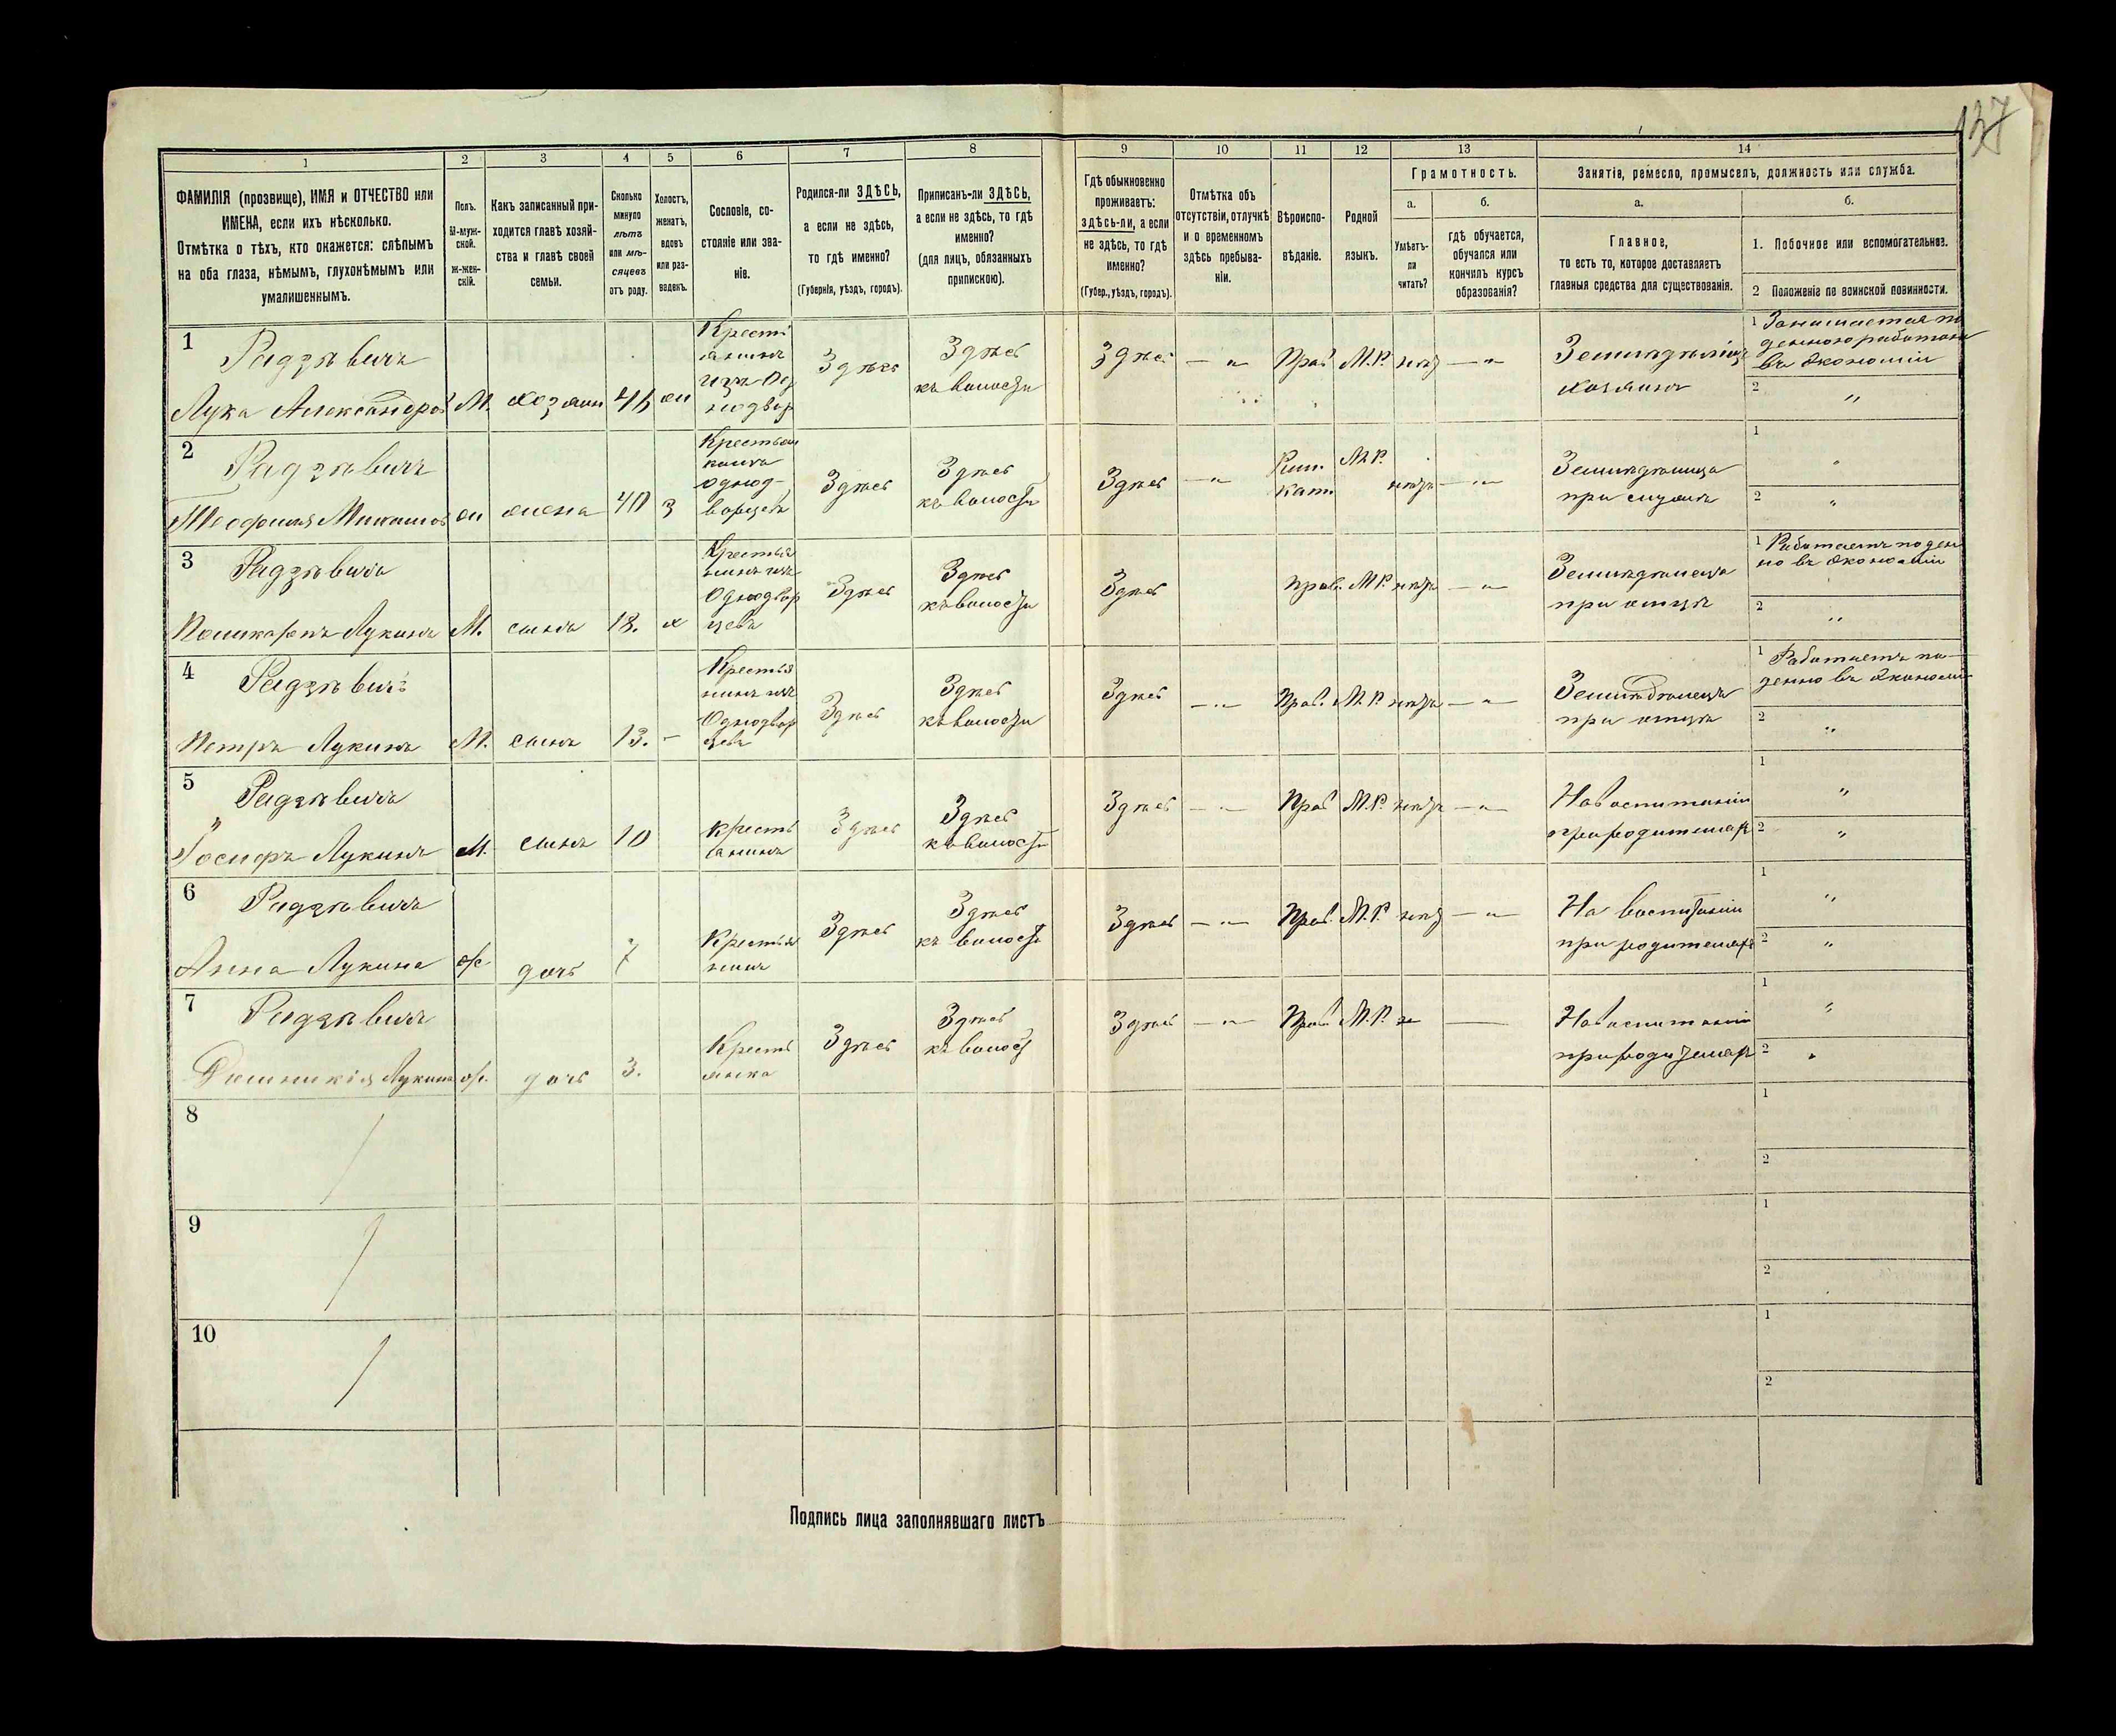 137
1 2 3 4 5 6 7 8 9 10 11 12 13 14
ФАМИЛІЯ (прозвище), ИМЯ и ОТЧЕСТВО или
ИМЕНА, если ихъ нѣсколько.
Отмѣтка о тѣхъ, кто окажется: слѣпымъ
на оба глаза, нѣмымъ, глухонѣмымъ или
умалишеннымъ.
Полъ.
М-муж-
ской.
Ж-жен-
скій.
Какъ записанный при-
ходится главѣ хозяй-
ства и главѣ своей
семьи.
Сколько
минуло
лѣтъ
или мѣ-
сяцевъ
отъ роду.
Холостъ,
женатъ,
вдовъ
или раз-
веденъ.
Сословіе, со-
стояніе или зва-
ніе.
Родился-ли ЗДѢСЬ,
а если не здѣсь,
то гдѣ именно?
(Губернія, уѣздъ, городъ).
Приписанъ-ли ЗДѢСЬ,
а если не здѣсь, то гдѣ
именно?
(для лицъ, обязанныхъ
припискою).
Гдѣ обыкновенно
проживаетъ:
здѣсь-ли, а если
не здѣсь, то гдѣ
именно?
(Губер., уѣздъ, городъ).
Отмѣтка объ
отсутствіи, отлучкѣ
и о временномъ
здѣсь пребыва-
ніи.
Вѣроиспо-
вѣданіе.
Родной
языкъ.
Грамотность.
а.
Умѣетъ-
ли
читать?
б.
гдѣ обучается,
обучался или
кончилъ курсъ
образованія?
Занятіе, ремесло, промыселъ, должность или служба.
а.
Главное,
то есть то, которое доставляетъ
главныя средства для существованія.
б.
1. Побочное или вспомогательное.
2 Положеніе по воинской повинности.
1
Радзѣвичъ
Лука Александровъ М. хозяинъ 46 ж
Крестьянинъ
изъ Од
Здѣсь
Здѣсь
къ волости
Здѣсь Прав М.Р. нѣтъ
Земледѣлецъ
хозяинъ
1 Занимается по
денною работою
въ экономіи
2 "
2
Радзѣвичъ
Теофилія ж жена 40 з
Крестьян
Здѣсь
Здѣсь
къ волости
Здѣсь Рим.
Кат. М.Р. нѣтъ
Земледѣлица
при мужѣ
1
2 "
3
Радзѣвичъ
Поликарпъ Лукинъ М. сынъ 18. х
Крестья
нинъ изъ
Однодвор
цевъ
Здѣсь
Здѣсь
къ волости
Здѣсь Прав. М.Р. нѣтъ
Земледѣлецъ
при отцѣ
1 Работаетъ поден
но въ экономіи
2 "
4
Радзѣвичъ
Петръ Лукинъ М. сынъ 13. -
Крестья
нинъ изъ
Однодвор
цевъ
Здѣсь
Здѣсь
къ волости
Здѣсь Прав. М.Р. нѣтъ
Земледѣлецъ
при отцѣ
1 Работаетъ по-
денно въ экономіи
2 "
5
Радзѣвичъ
Іосифъ Лукинъ М. сынъ 10
Кресть
янинъ
Здѣсь
Здѣсь
къ волости
Здѣсь Прав М.Р. нѣтъ
На воспитаніи
при родителяхъ
1 "
2 "
6
Радзѣвичъ
Анна Лукина ж дочь 7
Здѣсь
Здѣсь
къ волости
Здѣсь Прав. М.Р. нѣтъ
На воспитаніи
при родителяхъ
1 "
2 "
7
Радзѣвичъ
Лукина ж. дочь 3.
Кресть
янка
Здѣсь
Здѣсь
къ волост
Здѣсь Прав. М.Р.
На воспитаніи
при родителях
1 "
2 "
8
1
2
9
1
2
10
1
2
Подпись лица заполнявшаго листъ